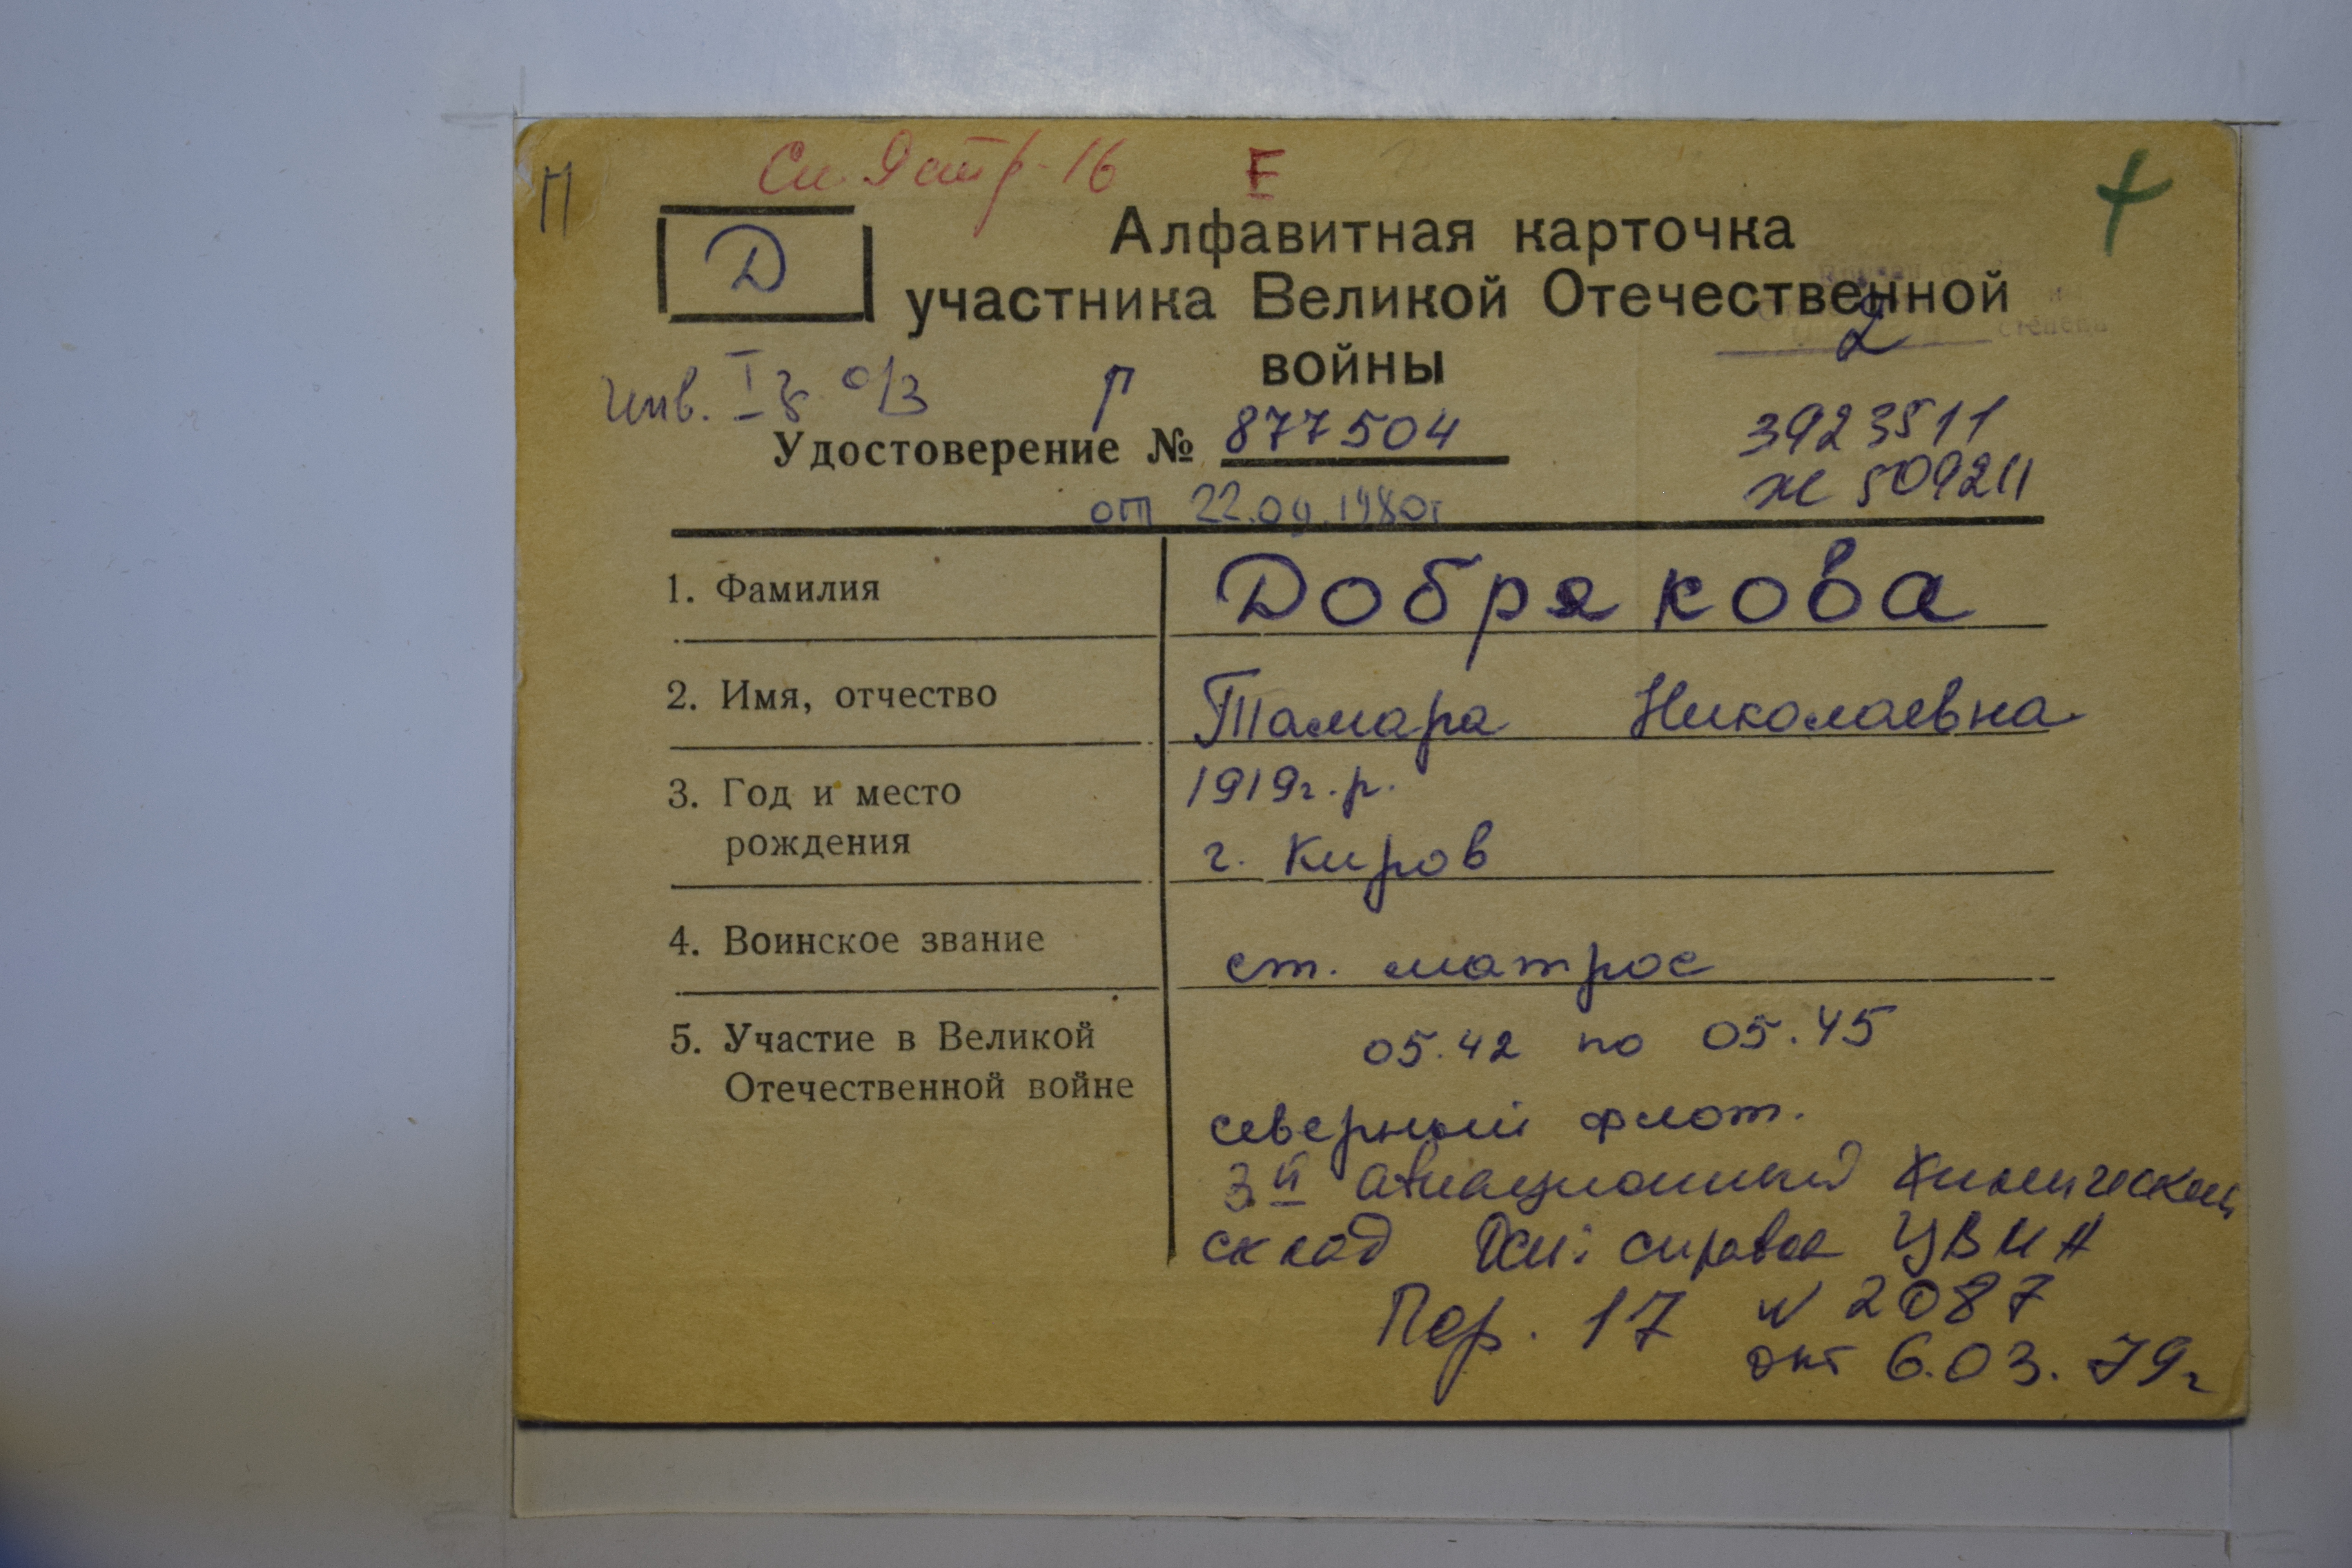 П
Сп 9 стр-16 Е
Д
Алфавитная карточка
участника Великой Отечественной
войны
степени
2
Инв. I г о/з Г
Удостоверение № 877504
3923511
от 22.09.1980г
Ж 509211
1. Фамилия Добрякова
2. Имя, отчество Тамара Николаевна
3. Год и место рождения 1919г.р.
г. Киров
4. Воинское звание ст. матрос
5. Участие в Великой Отечественной войне 05.42 по 05.45
северный флот.
3й авиационный химический
склад Осн: справка ЦВМА
Пер. 17 N 2087
от 6.03.79г